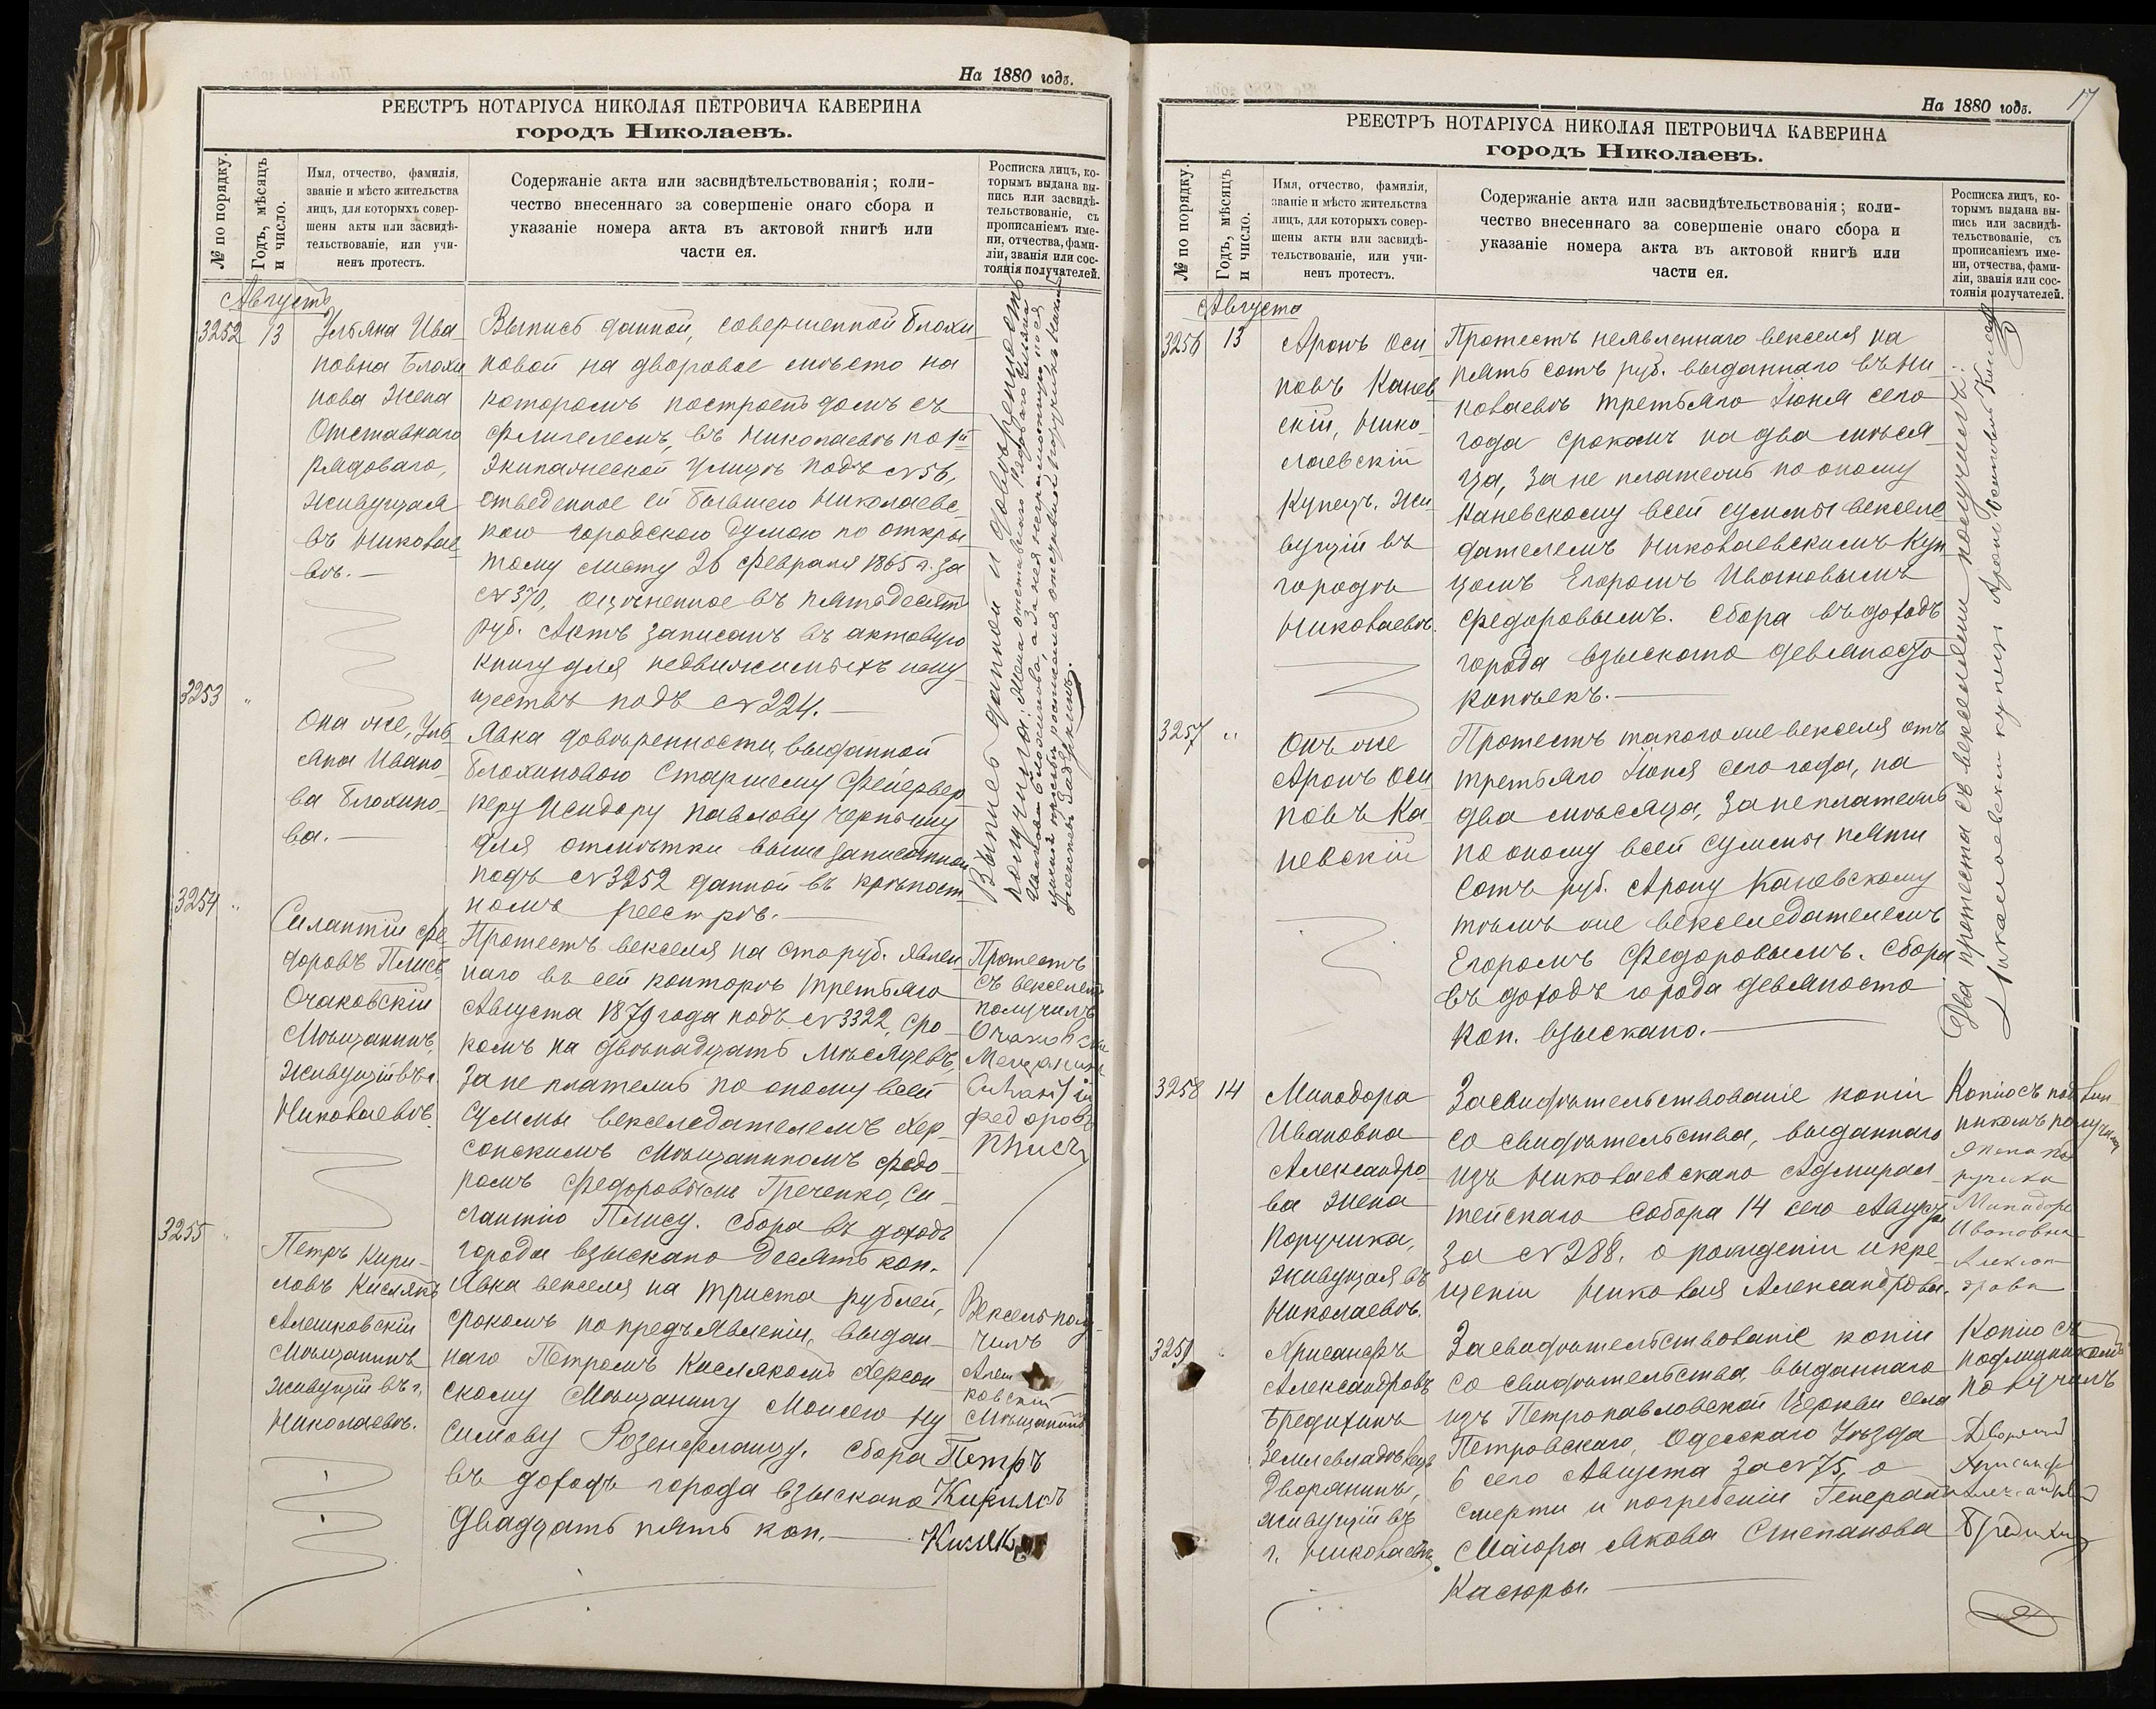 На 1880 годъ.
РЕЕСТРЪ НОТАРІУСА НИКОЛАЯ ПЕТРОВИЧА КАВЕРИНА
городъ Николаевъ.
№ по порядку.
Годъ, мѣсяцъ
и число.
Имя, отчество, фамилія,
званіе и мѣсто жительства
лицъ, для которыхъ совер-
шены акты или засвидѣ-
тельствованіе, или учи-
ненъ протестъ.
Содержаніе акта или засвидѣтельствованія; коли-
чество внесеннаго за совершеніе онаго сбора и
указаніе номера акта въ актовой книгѣ или
части ея.
Росписка лицъ, ко-
торымъ выдана вы-
пись или засвидѣ-
тельствованіе, съ
прописаніемъ име-
ни, отчества, фами-
ліи, званія или сос-
тоянія получателей.
Августъ
3252
13
Ульяна Ива-
новна Блохи
нова жена
Отставнаго
рядоваго,
живущая
въ Николае
вѣ.
Выпись данной, совершенной Блохи-
новой на дворовое мѣсто на
которомъ построенъ домъ съ
флигелемъ, въ Николаевѣ по 1й
Экипажеской улицѣ подъ №56,
отведенное ей бывшею Николаевс-
кою городскою думою по откры-
тому листу 26 Февраля 1865 г. за
№370, оцѣненное въ пятьдесятъ
руб. Актъ записанъ въ актовую
книгу для недвижимыхъ иму-
ществъ подъ №224.
Выпись данной и довѣренность
получила: жена отставнаго рядоваго Ульяна
3253
"
Она же, Уль
яна Ивано-
ва Блохино-
ва.
Явка довѣренности, выданной
Блохиновою Старшему Фейервер
керу Исидору Павлову Чернышу
для отмѣтки выше записанной
подъ №3252 данной въ крѣпост
номъ реестрѣ.
3254
"
Силантій Фе
доровъ Плисъ,
Очаковскій
Мѣщанинъ,
живущій въ г.
Николаевѣ.
Протестъ векселя на сто руб. явлен
наго въ сей конторѣ третьяго
Августа 1879 года подъ №3322, сро-
комъ на двѣнадцать мѣсяцевъ,
за не платежъ по оному всей
суммы векселедателемъ Хер-
сонскимъ Мѣщаниномъ Федо-
ромъ Федоровымъ Греченко, Си-
лантію Плису. Сбора въ доходъ
города взыскано десять коп.
Протестъ
съ векселемъ
получилъ
Очаковски
Мещанинъ
Силантій
Федоровъ
Плисъ
3255
"
Петръ Кири-
ловъ Кислякъ
Алешковскій
Мѣщанинъ
живущій въ г.
Николаевѣ.
Явка векселя на триста рублей,
срокомъ по предъявленіи, выдан-
наго Петромъ Кислякомъ Херсон
скому Мѣщанину Моисею Ну
симову Розенфланцу. Сбора
въ доходъ города взыскано
двадцать пять коп.
Вексель полу-
чилъ
Алеш
ковскій
Мѣщанинъ
Петръ
Кириловъ
Кисляк
На 1880 годъ.
17
РЕЕСТРЪ НОТАРІУСА НИКОЛАЯ ПЕТРОВИЧА КАВЕРИНА
городъ Николаевъ.
№ по порядку.
Годъ, мѣсяцъ
и число.
Имя, отчество, фамилія,
званіе и мѣсто жительства
лицъ, для которыхъ совер-
шены акты или засвидѣ-
тельствованіе, или учи-
ненъ протестъ.
Содержаніе акта или засвидѣтельствованія; коли-
чество внесеннаго за совершеніе онаго сбора и
указаніе номера акта въ актовой книгѣ или
части ея.
Росписка лицъ, ко-
торымъ выдана вы-
пись или засвидѣ-
тельствованіе, съ
прописаніемъ име-
ни, отчества, фами-
ліи, званія или сос-
тоянія получателей.
Августа
3256
13
Аронъ Оси
повъ Канев
скій, Нико-
лаевскій
Купецъ, жи-
вущій въ
городѣ
Николаевѣ.
Протестъ неявленнаго векселя на
пять сотъ руб. выданнаго въ Ни-
колаевѣ третьяго Іюня сего
года срокомъ на два мѣся
ца, за не платежъ по оному
Каневскому всей суммы вексле
дателемъ Николаевскимъ Куп
цомъ Егоромъ Ивановымъ
Федоровымъ. Сбора въ доходъ
города взыскано девяносто
копѣекъ.
Два протеста съ векселями получилъ:
Николаевскій купецъ Аронъ Осиповъ
3257
"
Онъ же
Аронъ Оси
повъ Ка
невскій
Протестъ такого же векселя отъ
третьяго Іюня сего года, на
два мѣсяца, за не платежъ
по оному всей суммы пяти
сотъ руб. Арону Каневскому
тѣмъ же векселедателемъ
Егоромъ Федоровымъ. Сбора
въ доходъ города девяносто
коп. взыскано.
3258
14
Минодора
Ивановна
Александро-
ва жена
Поручика,
живущая въ
Николаевѣ.
Засвидѣтельствованіе копіи
со свидѣтельства, выданнаго
изъ Николаевскаго Адмирал
тейскаго Собора 14 сего Августа
за №288. о рожденіи и кре-
щеніи Николая Александрова.
Копію съ подлин-
никомъ получила
жена по
ручика
Минодора
Ивановна
Алексан
дрова
3259
"
Хрисанфъ
Александровъ
Бредихинъ
Землевладѣлецъ
Дворянинъ,
живущій въ
г. Николаевѣ.
Засвидѣтельствованіе копіи
со свидѣтельства, выданнаго
изъ Петропавловской Церкви села
Петровскаго, Одесскаго Уѣзда
6 сего Августа за №75, о
смерти и погребеніи Генералъ
Маіора Якова Степанова
Касюры.
Копію съ
подлинникомъ
получилъ
Дворянинъ
Хрисанфъ
Александров
Бредихин